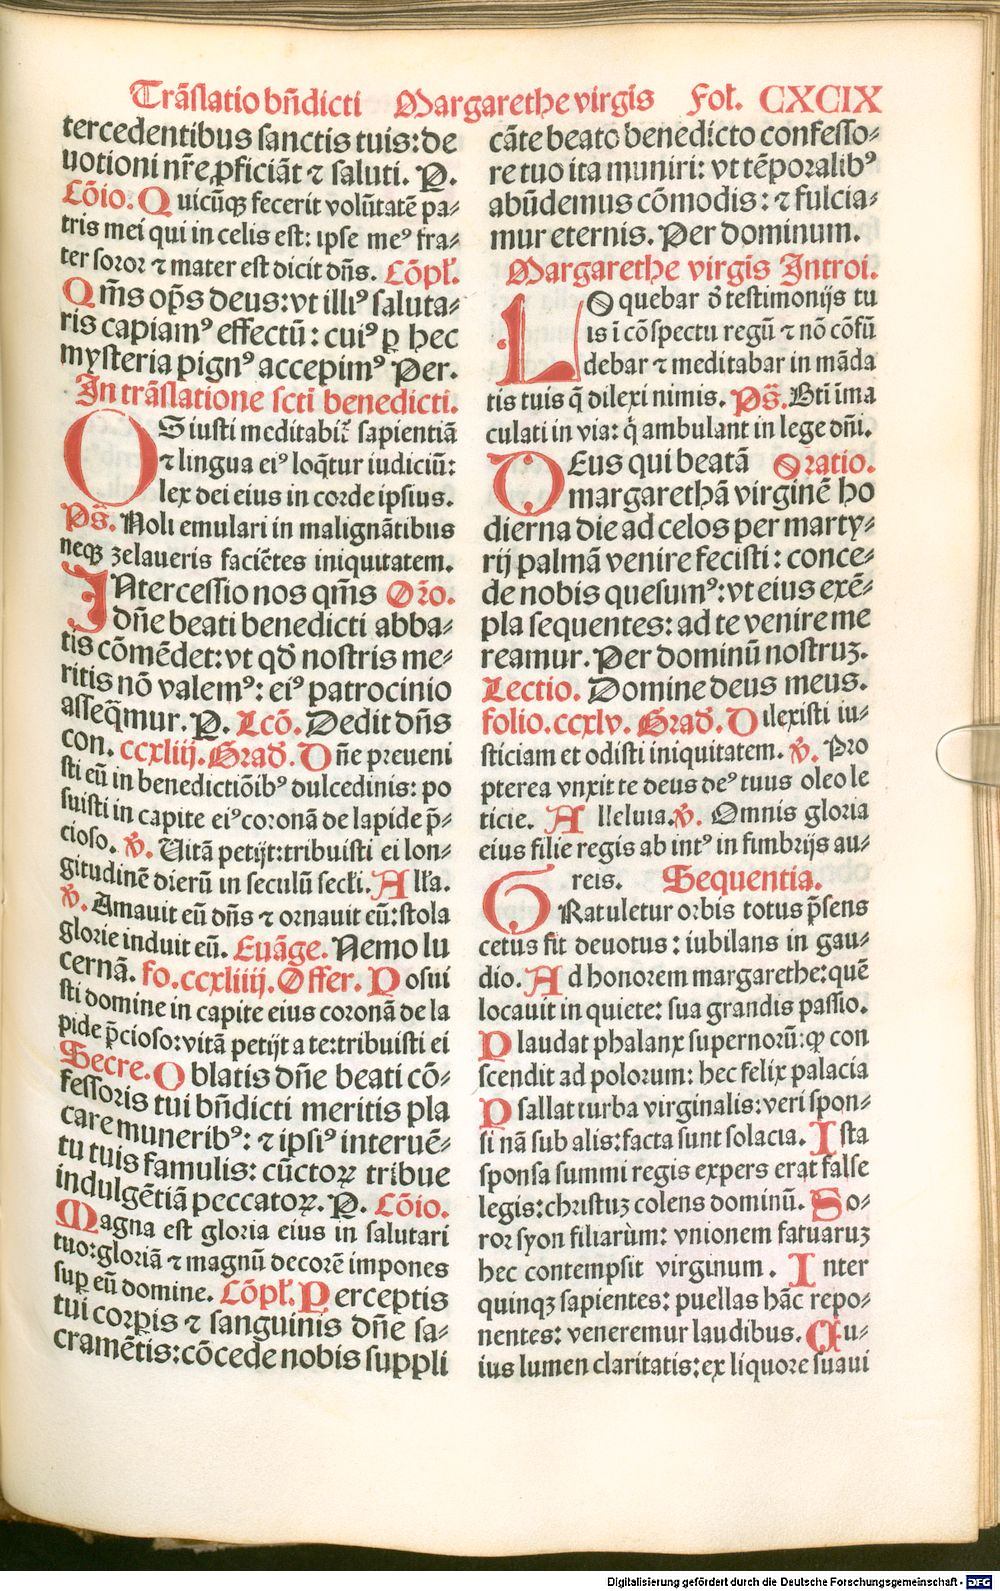 Trãſlatio bñdicti Margarethe virgĩs Fol. CXCIX
tercedentibus ſanctis tuis: de
uotioni nr̃e ꝓficiãt ⁊ ſaluti. P.
Cõio. Quicũqꝫ fecerit volũtatẽ pa⸗
tris mei qui in celis eſt: ipſe meꝰ fra⸗
ter ſoror ⁊ mater eſt dicit dñs. Cõpł.
Qm̃s op̃s deus: vt illiꝰ ſaluta⸗
ris capiamꝰ effectũ: cuiꝰ ꝑ hec
myſteria pignꝰ accepimꝰ Per.
In trãſlatione ſctĩ benedicti.
OS iuſti meditabiť ſapientiã
⁊ lingua eiꝰ loq̃tur iudiciũ:
lex dei eius in corde ipſius.
Pš. Noli emulari in malignãtibus
neqꝫ zelaueris faciẽtes iniquitatem.
INterceſſio nos qm̃s Oŕo.
dñe beati benedicti abba⸗
tis cõmẽdet: vt qđ noſtris me⸗
ritis nõ valemꝰ: eiꝰ patrocinio
aſſeq̃mur. P. Lcõ. Dedit dñs
con. ccxliij. Građ. Dñe preueni
ſti eũ in benedictiõibꝰ dulcedinis: po
ſuiſti in capite eiꝰ coronã de lapide p̃⸗
cioſo. ꝟ. Vitã petijt: tribuiſti ei lon⸗
gitudinẽ dierũ in ſeculũ ſecłi. Alła.
ꝟ. Amauit eũ dñs ⁊ ornauit eũ: ſtola
glorie induit eũ. Euãge. Nemo lu
cernã. fo. ccxliiij. Offer. Poſui
ſti domine in capite eius coronã de la
pide p̃cioſo: vitã petijt a te: tribuiſti ei
Secre. Oblatis dñe beati cõ⸗
feſſoris tui bñdicti meritis pla
care muneribꝰ: ⁊ ipſiꝰ interuẽ⸗
tu tuis famulis: cũctoꝝ tribue
indulgẽtiã peccatoꝝ. P. Cõio.
Magna eſt gloria eius in ſalutari
tuo: gloriã ⁊ magnũ decorẽ impones
ſuꝑ eũ domine. Cõpł. Perceptis
tui corꝑis ⁊ ſanguinis dñe ſa⸗
cramẽtis: cõcede nobis ſuppli
cãte beato benedicto confeſſo⸗
re tuo ita muniri: vt tẽporalibꝰ
abũdemus cõmodis: ⁊ fulcia⸗
mur eternis. Per dominum.
Margarethe virgĩs Introi.
LOquebar đ teſtimonijs tu
is ĩ cõſpectu regũ ⁊ nõ cõfũ
debar ⁊ meditabar in mãda
tis tuis q̃ dilexi nimis. Pš. Bti ĩma
culati in via: q̃ ambulant in lege dñi.
DEus qui beatã Oratio.
margarethã virginẽ ho
dierna die ad celos per marty⸗
rij palmã venire feciſti: conce⸗
de nobis queſumꝰ: vt eius exẽ⸗
pla ſequentes: ad te venire me
reamur. Per dominũ noſtruꝫ.
Lectio. Domine deus meus.
folio. ccxlv. Građ. Dilexiſti iu⸗
ſticiam et odiſti iniquitatem. ꝟ. Pro
pterea vnxit te deus deꝰ tuus oleo le
ticie. Alleluia. ꝟ. Omnis gloria
eius filie regis ab intꝰ in fimbrijs au⸗
reis. Sequentia.
GRatuletur orbis totus p̃ſens
cetus ſit deuotus: iubilans in gau⸗
dio. Ad honorem margarethe: quẽ
locauit in quiete: ſua grandis paſſio.
Plaudat phalanx ſupernorũ: ꝙ con
ſcendit ad polorum: hec felix palacia
Pſallat turba virginalis: veri ſpon⸗
ſi nã ſub alis: facta ſunt ſolacia. Iſta
ſponſa ſummi regis expers erat falſe
legis: chriſtuꝫ colens dominũ. So⸗
ror ſyon filiarùm: vnionem fatuaruꝫ
hec contempſit virginum. Inter
quinqꝫ ſapientes: puellas hãc repo⸗
nentes: veneremur laudibus. Cu⸗
ius lumen claritatis: ex liquore ſuaui
Digitalisierung gefördert durch die Deutsche Forschungsgemeinschaft - DFG